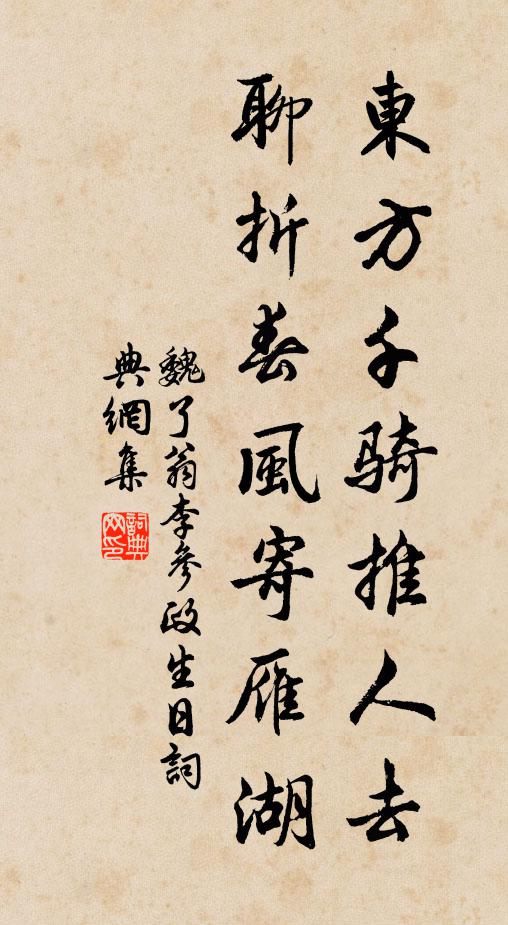 東方千骑推人去
聊折春風寄雁湖
魏了翁李參政生日詞
典網集
詞典網印